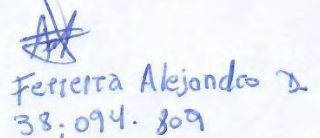 Ferrerra Alejandro D
38.094.809